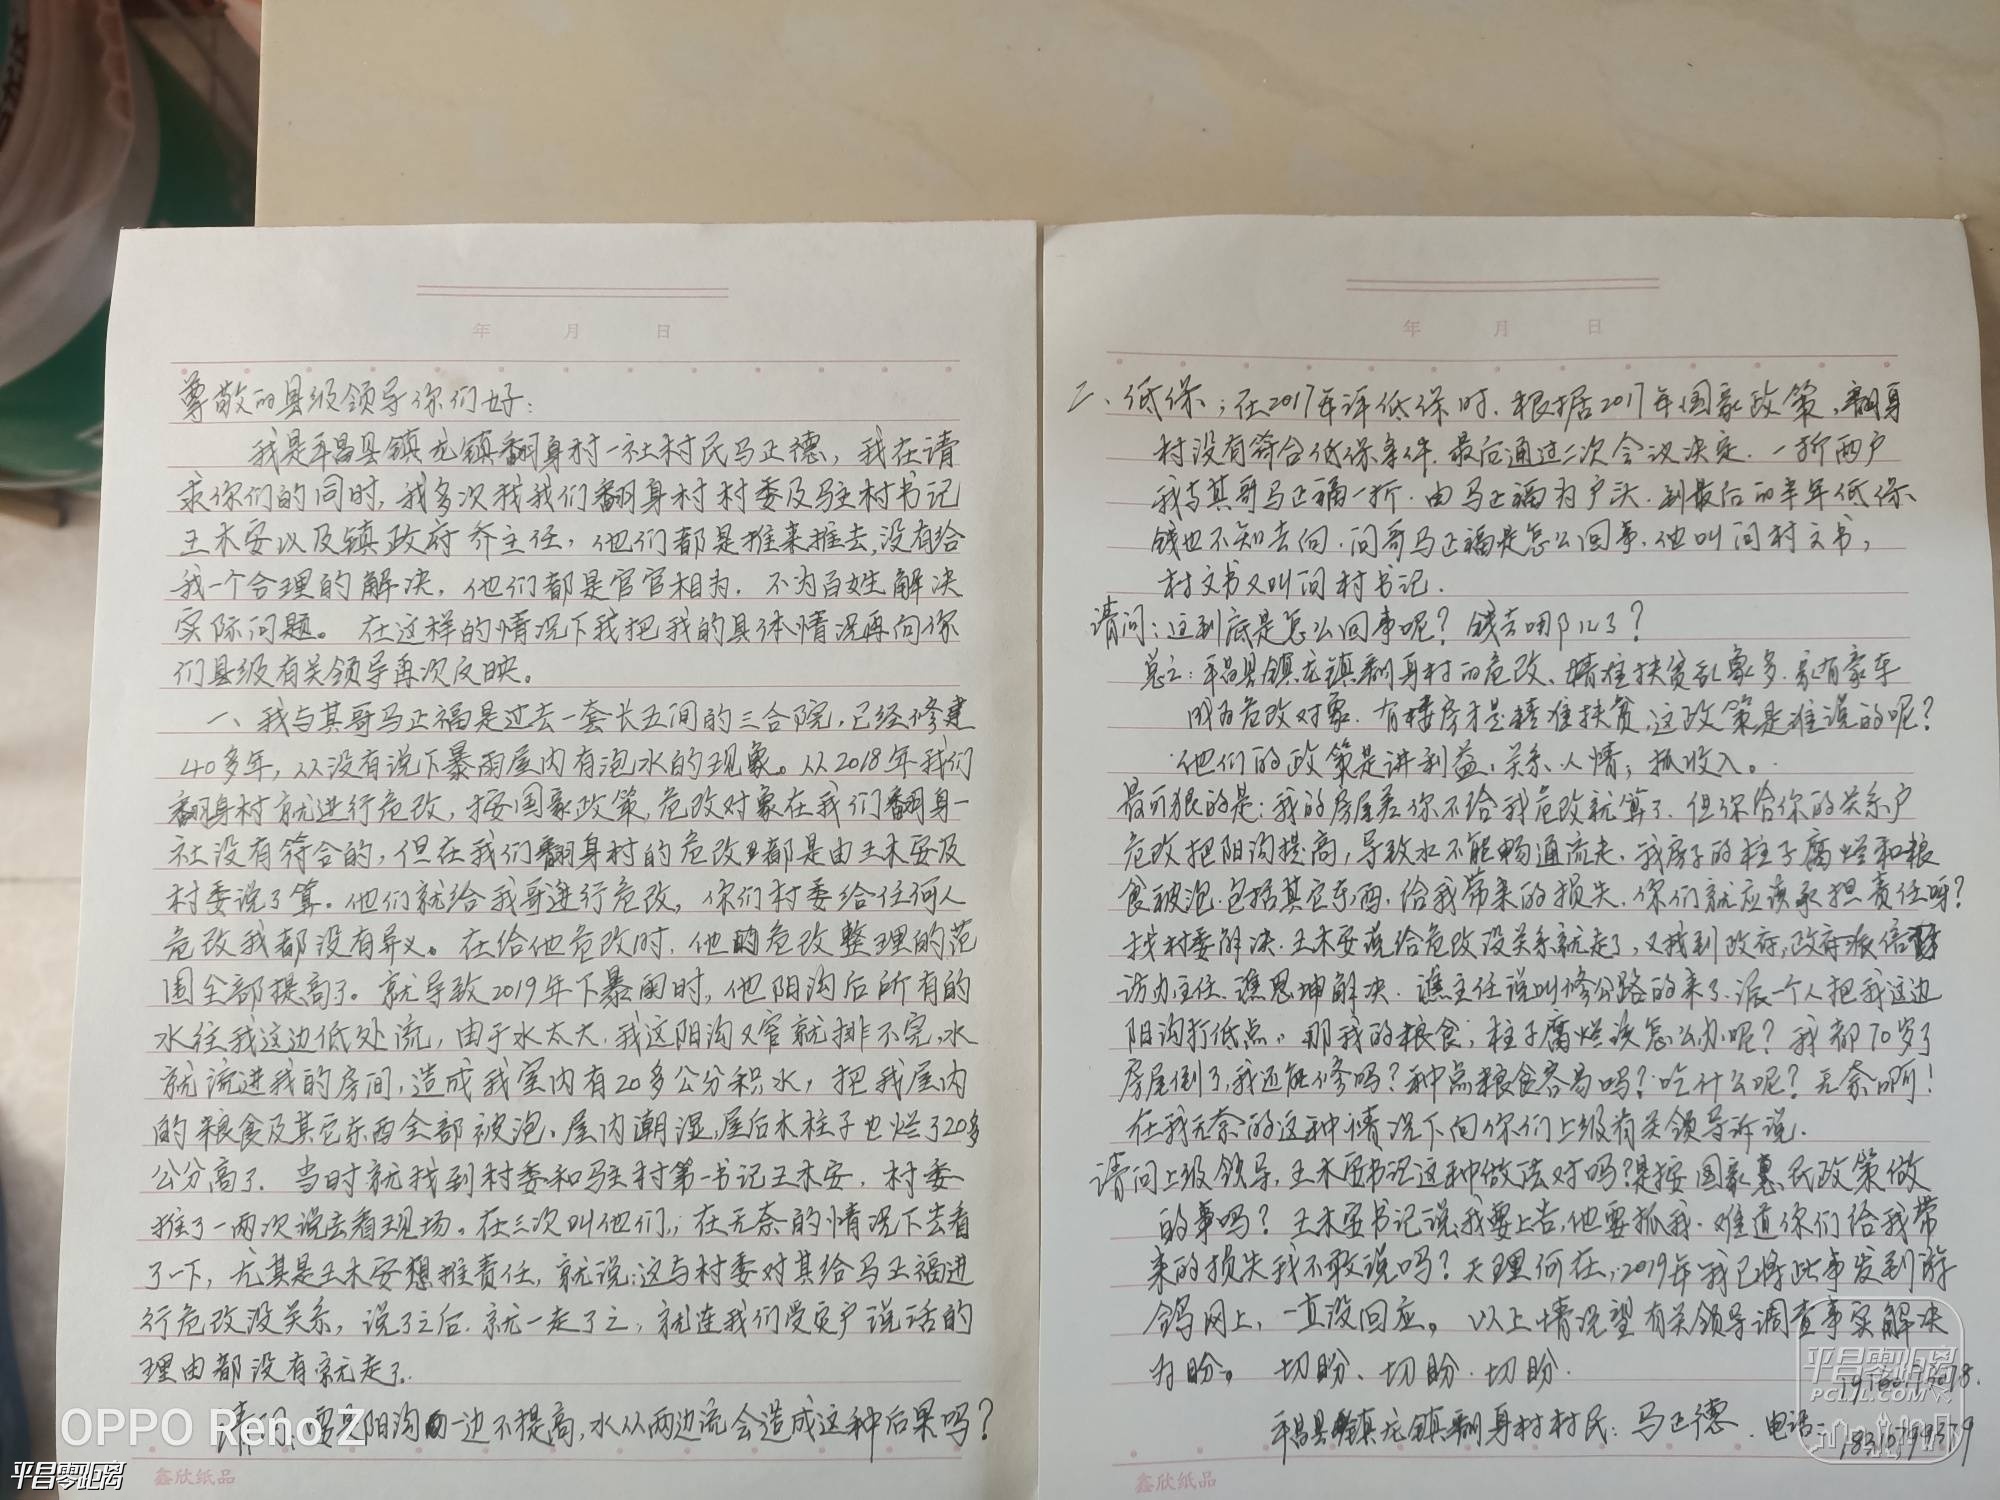 年 月 日
尊敬的县级领导你们好:
我是平昌县镇龙镇翻身村一社村民马正德，我在请
求你们的同时，我多次找我们翻身村村委及驻村书记
王木安以及镇政府乔主任，他们都是推来推去，没有给
我一个合理的解决，他们都是官官相为，不为百姓解决
实际问题。在这样的情况下我把我的具体情况再向你
们县级有关领导再次反映。
一、我与其哥马正福是过去一套长五间的三合院，已经修建
40多年，从没有说下暴雨屋内有泡水的现象。从2018年我们
翻身村就进行危改，按国家政策，危改对象在我们翻身一
社没有符合的，但在我们翻身村的危改都是由王木安及
村委说了算。他们就给我哥进行危改，你们村委给任何人
危改我都没有异义。在给他危改时，他的危改整理的范
围全部提高了。就导致2019年下暴雨时，他阳沟后所有的
水往我这边低处流，由于水太大，我这阳沟又窄就排不完，水
就流进我的房间，造成我室内有20多公分积水，把我屋内
的粮食及其它东西全部被泡、屋内潮湿，屋后木柱子也烂了20多
公分高了。当时就找到村委和驻村第一书记王木安，村委
推了一两次说去看现场。在三次叫他们，在无奈的情况下去看
了一下，尤其是王木安想推责任，就说:这与村委对其给马正福进
行危改没关系，说了之后，就一走了之，就连我们受灾户说话的
理由都没有就走了。
请问 阳沟 一边不提高，水从两边流会造成这种后果吗？
鑫欣纸品
OPPO Reno Z
平昌零距离
年 月 日
二、低保；在2017年评低保时，根据2017年国家政策，翻身
村没有符合低保条件，最后通过二次会议决定，一折两户
我与其哥马正福一折，由马正福为户头，到最后的半年低保
钱也不知去向，问哥马正福是怎么回事，他叫问村文书，
村文书又叫问村书记。
请问：这到底是怎么回事呢？钱去哪儿了？
总之：平昌县镇龙镇翻身村的危改、精准扶贫乱象多，家有豪车
成为危改对象，有楼房才是精准扶贫，这政策是谁说的呢？
他们的政策是讲利益、关系、人情；抓收入。
最可狠的是：我的房屋差你不给我危改就算了，但你给你的关系户
危改把阳沟提高，导致水不能畅通流走，我房子的柱子腐烂和粮
食被泡，包括其它东西，给我带来的损失，你们就应该承担责任呀？
找村委解决，王木安说给危改没关系就走了，又找到政府，政府派信
访办主任 谯思坤解决，谯主任说叫修公路的来了，派一个人把我这边
阳沟打低点。那我的粮食；柱子腐烂该怎么办呢？我都70岁了
房屋倒了，我还能修吗？种点粮食容易吗？吃什么呢？无奈啊！
在我无奈的这种情况下向你们上级有关领导诉说。
请问上级领导，王木安书记这种做法对吗？是按国家惠民政策做
的事吗？王木安书记说，我要上告，他要抓我，难道你们给我带
来的损失我不敢说吗？天理何在，2019年我已将此事发到游
鸽网上，一直没回应。以上情况望有关领导调查事实解决
为盼。切盼、切盼、切盼。
平昌县镇龙镇翻身村村民：马正德 电话：
平昌零距离
PCLJL.COM
鑫欣纸品